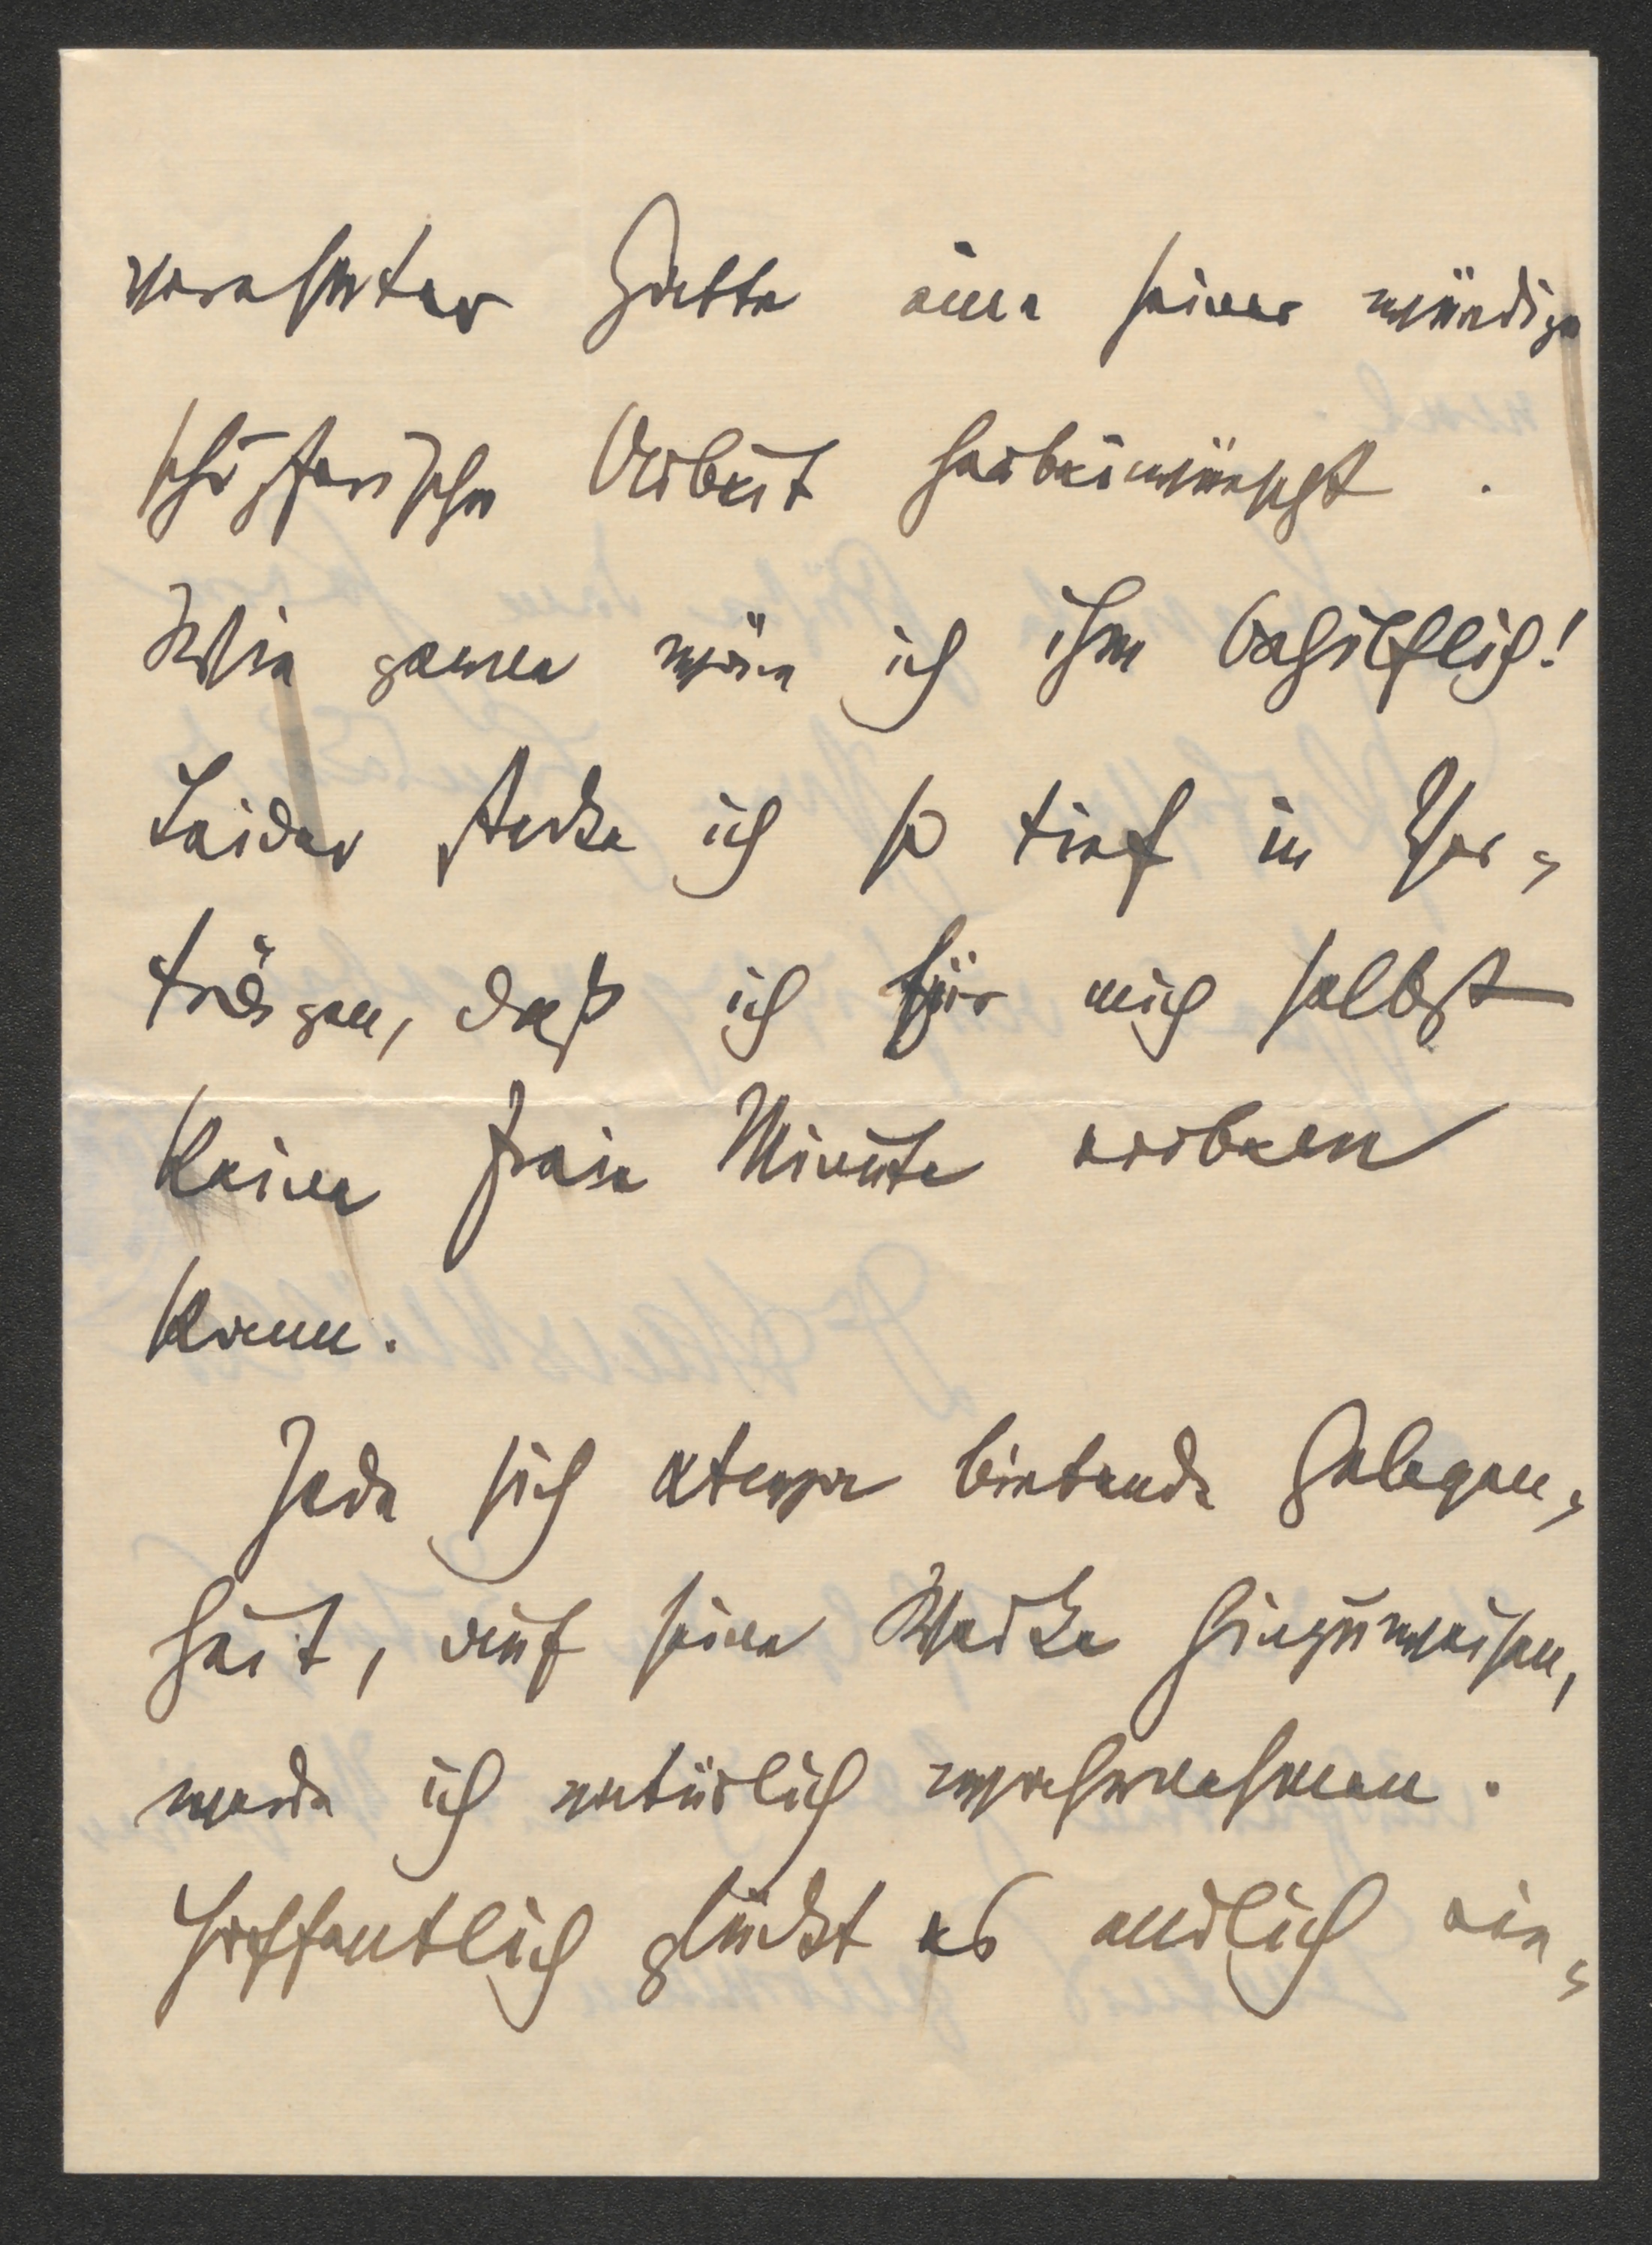 verehrter Gatte eine seiner würdige
schöpferische Arbeit herbeiwünscht.
Wie gerne wäre ich ihm behilflich!
Leider stecke ich so tief in Ver-
trägen, daß ich für mich selbst
keine freie Minute erübrigen
kann.
Jede sich etwa bietende Gelegen-
heit, auf seine Werke hinzuweisen,
werde ich natürlich wahrnehmen.
Hoffentlich glückt es endlich ein-